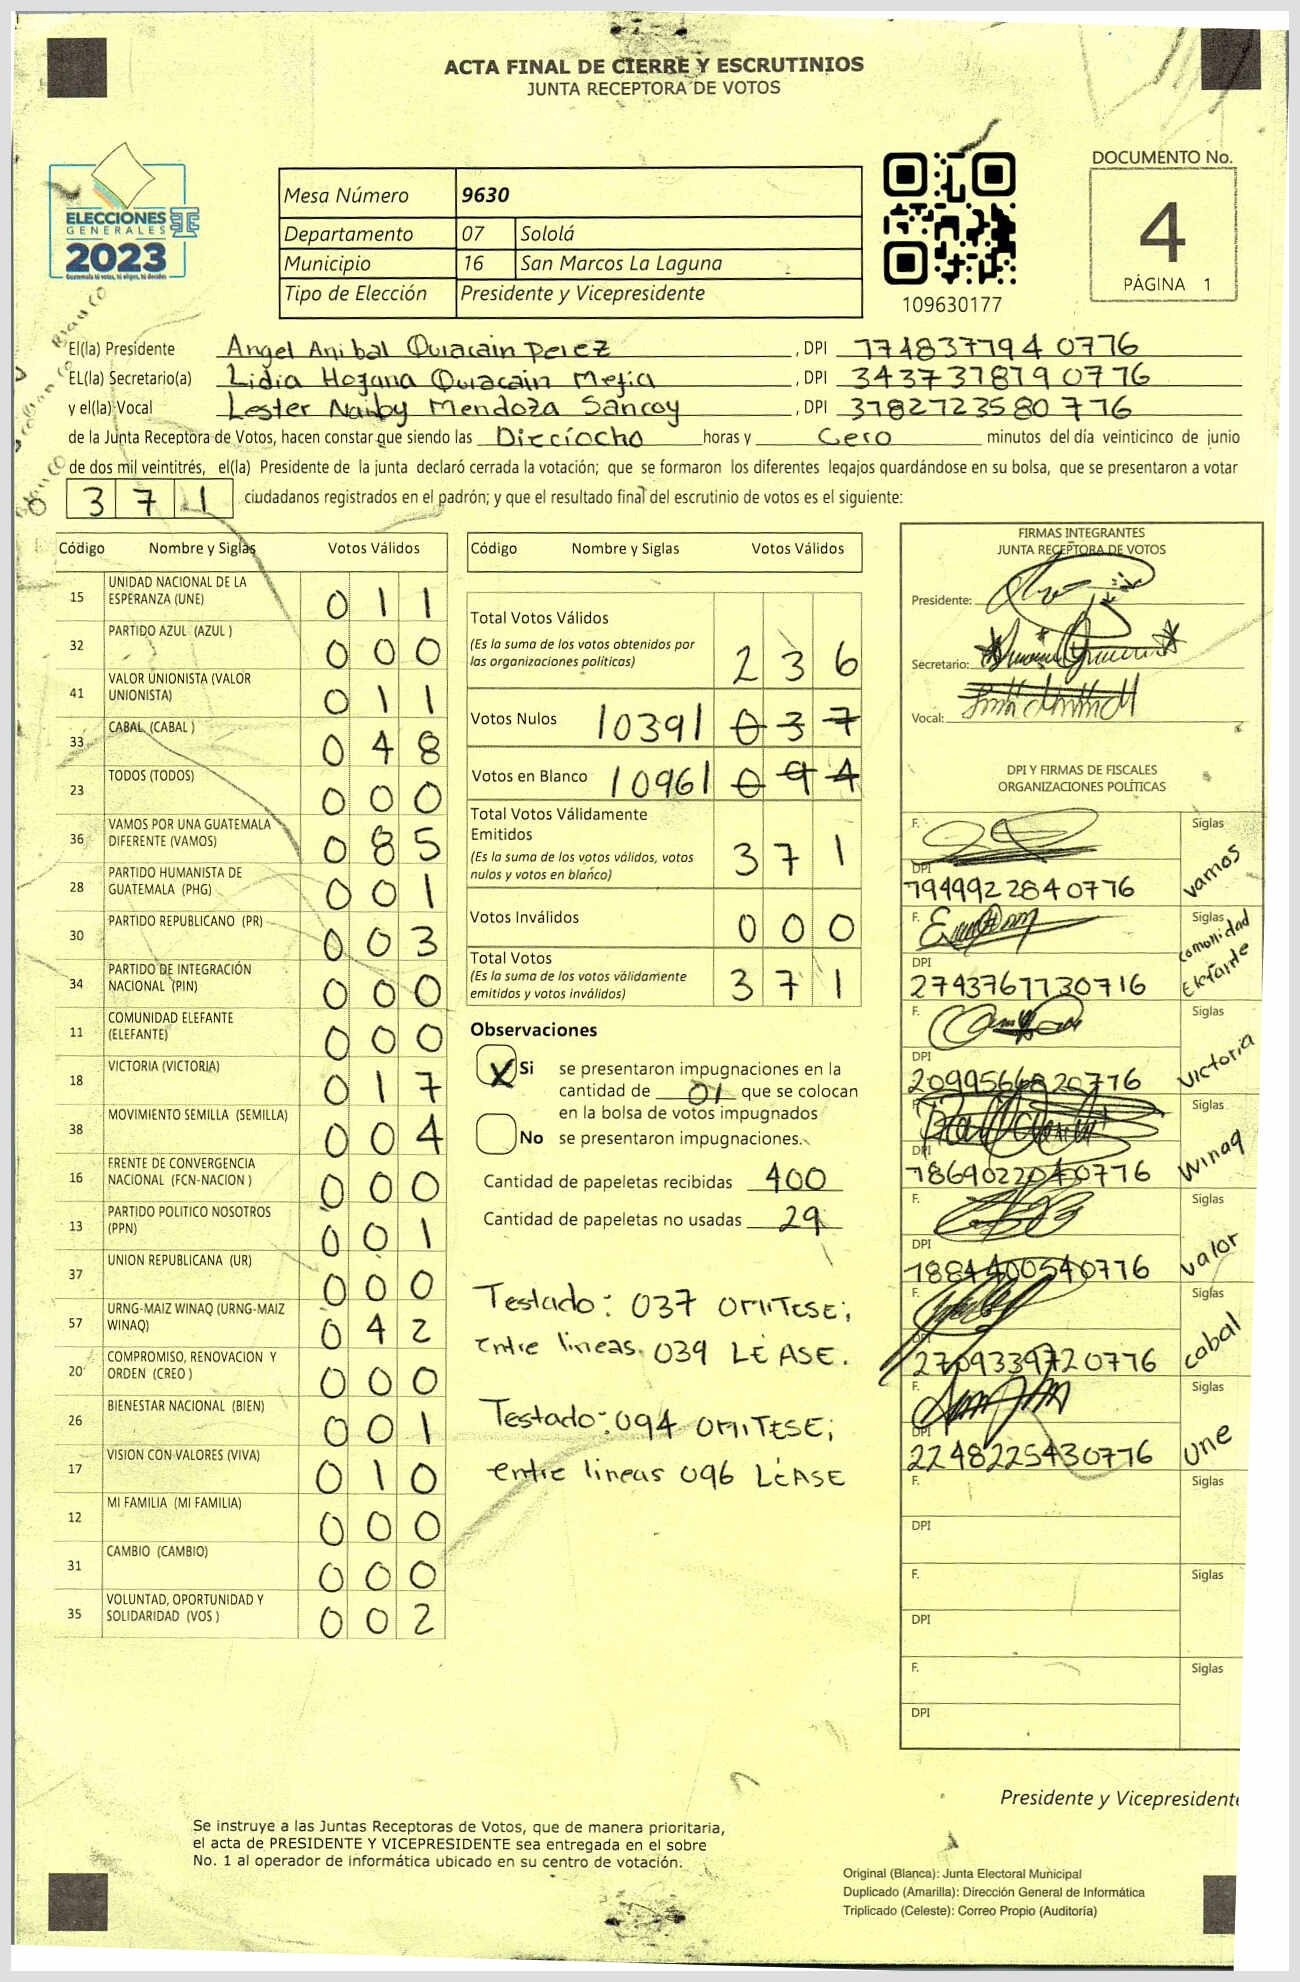 ACTA FINAL DE CIERRE Y ESCRUTINIOS
JUNTA RECEPTORA DE VOTOS
ELECCIONES
GENERALES
2023
Guatemala tú votas, tú eliges, tú decides
Mesa Número 9630
Departamento 07 Sololá
Municipio 16 San Marcos La Laguna
Tipo de Elección Presidente y Vicepresidente
109630177
DOCUMENTO No.
4
PÁGINA 1
El(la) Presidente Angel Anibal Quiacain perez, DPI 1748377940776
EL(la) Secretario(a) Lidia Hozana Quiacain Mejia, DPI 3437378190776
y el(la) Vocal Lester Nanby Mendoza Sancoy, DPI 3782723580776
de la Junta Receptora de Votos, hacen constar que siendo las Dieciocho horas y Cero minutos del día veinticinco de junio
de dos mil veintitrés, el(la) Presidente de la junta declaró cerrada la votación; que se formaron los diferentes legajos quardándose en su bolsa, que se presentaron a votar
371 ciudadanos registrados en el padrón; y que el resultado final del escrutinio de votos es el siguiente:
Código Nombre y Siglas Votos Válidos
15 UNIDAD NACIONAL DE LA ESPERANZA (UNE) 011
32 PARTIDO AZUL (AZUL ) 000
41 VALOR UNIONISTA (VALOR UNIONISTA) 011
33 CABAL (CABAL ) 048
23 TODOS (TODOS) 000
36 VAMOS POR UNA GUATEMALA DIFERENTE (VAMOS) 085
28 PARTIDO HUMANISTA DE GUATEMALA (PHG) 001
30 PARTIDO REPUBLICANO (PR) 003
34 PARTIDO DE INTEGRACIÓN NACIONAL (PIN) 000
11 COMUNIDAD ELEFANTE (ELEFANTE) 000
18 VICTORIA (VICTORIA) 017
38 MOVIMIENTO SEMILLA (SEMILLA) 004
16 FRENTE DE CONVERGENCIA NACIONAL (FCN-NACION ) 000
13 PARTIDO POLITICO NOSOTROS (PPN) 001
37 UNION REPUBLICANA (UR) 000
57 URNG-MAIZ WINAQ (URNG-MAIZ WINAQ) 042
20 COMPROMISO, RENOVACION Y ORDEN (CREO ) 000
26 BIENESTAR NACIONAL (BIEN) 001
17 VISION CON VALORES (VIVA) 010
12 MI FAMILIA (MI FAMILIA) 000
31 CAMBIO (CAMBIO) 000
35 VOLUNTAD, OPORTUNIDAD Y SOLIDARIDAD (VOS ) 002
Código Nombre y Siglas Votos Válidos
Total Votos Válidos 236
(Es la suma de los votos obtenidos por
las organizaciones politicas)
Votos Nulos 10391 037
Votos en Blanco 10961 094
Total Votos Válidamente
Emitidos 371
(Es la suma de los votos válidos, votos
nulos y votos en blanco)
Votos Inválidos 000
Total Votos 371
(Es la suma de los votos válidamente
emitidos y votos inválidos)
Observaciones
X Si se presentaron impugnaciones en la
cantidad de 01 que se colocan
en la bolsa de votos impugnados
No se presentaron impugnaciones.
Cantidad de papeletas recibidas 400
Cantidad de papeletas no usadas 29
Testado: 037 OMITESE;
entre lineas. 039 LÉASE.
Testado: 094 OMITESE;
entre lineas 096 LÉASE
FIRMAS INTEGRANTES
JUNTA RECEPTORA DE VOTOS
Presidente:
Secretario:
Vocal:
DPI Y FIRMAS DE FISCALES
ORGANIZACIONES POLÍTICAS
F. Siglas
DPI
7949922840776 vamos
F. Siglas
DPI
2743767730716 comunidad Elefante
F. Siglas
DPI
2099566820776 Victoria
F. Siglas
DPI
7869022040776 Winaq
F. Siglas
DPI
7884400540776 valor
F. Siglas
DPI
2709339720776 cabal
F. Siglas
DPI
2248225430776 Une
F. Siglas
DPI
F. Siglas
DPI
F. Siglas
DPI
Presidente y Vicepresidente
Se instruye a las Juntas Receptoras de Votos, que de manera prioritaria,
el acta de PRESIDENTE Y VICEPRESIDENTE sea entregada en el sobre
No. 1 al operador de informática ubicado en su centro de votación.
Original (Blanca): Junta Electoral Municipal
Duplicado (Amarilla): Dirección General de Informática
Triplicado (Celeste): Correo Propio (Auditoría)